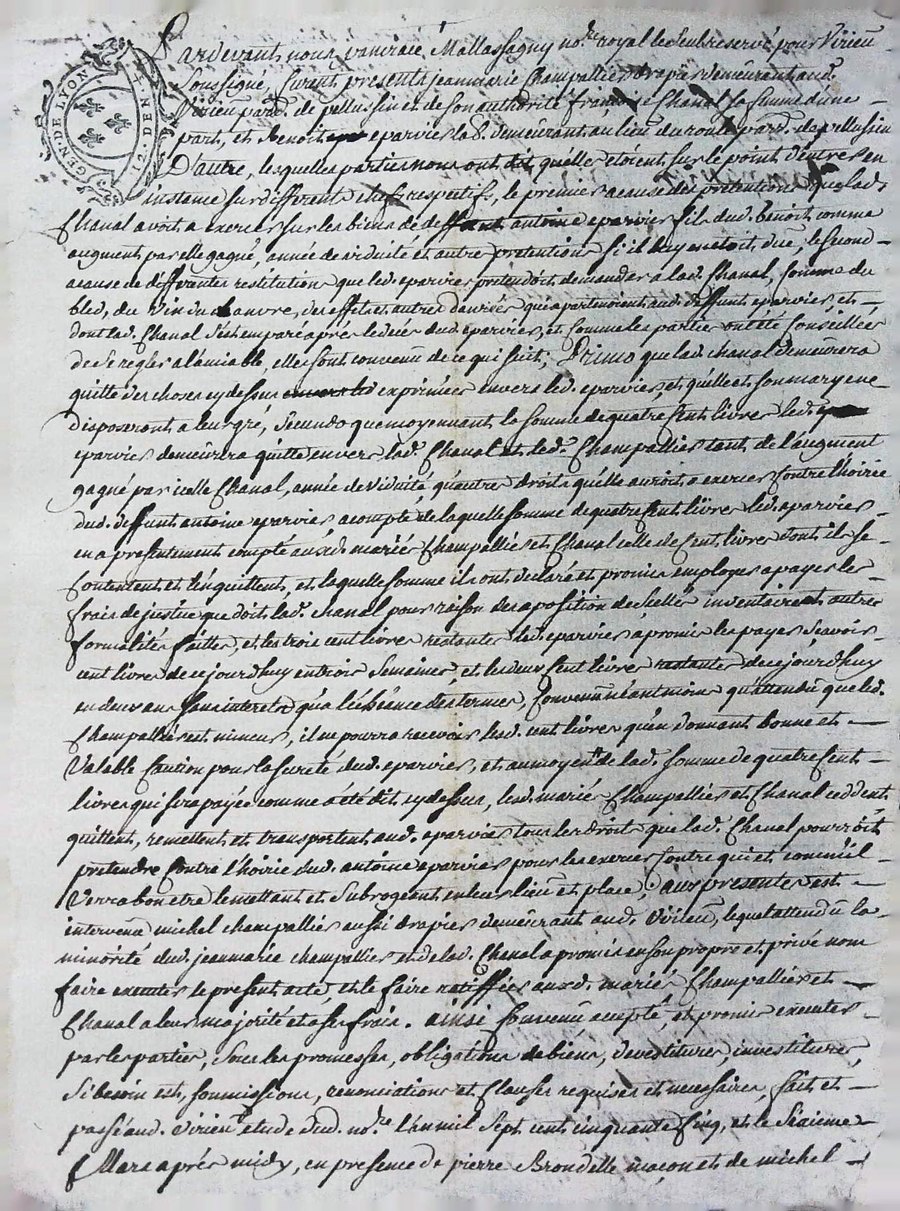 GEN. DE LYON
12. DEN
Pardevant nous vanraie Mallassagny no.re royal led. reservé pour Virieu
soussigné, furent presents jeanmarie Champallies drapier demeurant aud.
Virieu par.se de pellussin et de son authorité françoise Chanal sa femme d'une
part, et Benoit eparvies lab.r demeurant au lieu du par.se de pellussin
D'autre, lesquelles parties nous ont dit qu'elles etoient sur le point d'entrer en
instance sur differents chefs respectifs, le premier a cause des pretentions que lad.
Chanal avoit a exercer sur les biens de deffunt antoine eparvies fils dud. benoit comme
augment par elle gagné, année de viduité et autre pretention s'il luy en etoit, due, le second
a cause de differentes restitution que led. eparvies pretendoit demander a lad. Chanal, Comme du
bled, du vin du chanvre, des effets et autres danrées qui apartenoient aud. deffunt eparvies, et
dont lad. Chanal s'est emparé aprés le decer dud. eparvies, et Comme les parties ont été Conseillées
de se regler a l'amiable, elles sont convenu de ce qui suit; Primo que lad. chanal demeurera
quitte des choses cy dessus exprimées envers led. eparvies, et qu'elle et son mary en
disposeront a leur gré, Secundo que moyennant la somme de quatre Cent livres led.
eparvies demeurera quitte envers lad. Chanal et led. Champallies tant de l'augment
gagné par icelle Chanal, année de viduité qu'autres droits qu'elle auroit a exercer Contre l'hoirie
dud. deffunt antoine eparvies, a compte de laquelle somme de quatre Cent livres led. eparvies
en a presentement compté auxd. mariés Champallies et Chanal celle de Cent livres dont ils se
Contentent et l'enquittent, et laquelle somme ils ont declaré et promis employer a payer les
frais de justice que doit lad. Chanal pour raison des aposition de scellé inventaire et autres
formalités faittes, et les trois cent livres restantes led. eparvies a promis les payer sçavoir
cent livres de cejourd'huy en trois semaines, et les deux Cent livres restantes de cejourd'huy
en deux ans sans interets qu'a l'échéance des termes, Convenu néantmoins qu'attendu que led.
Champallies est mineur, il ne pourra recevoir lesd. cent livres qu'en donnant bonne et
Valable Caution pour la sureté dud. eparvies, et au moyen de lad. somme de quatre Cent
livres qui sera payée comme a été dit cy dessus, lesd. mariés Champallies et Chanal ceddent
quittent, remettent et transportent aud. eparvies tous les droits que lad. Chanal pourroit
pretendre Contre l'hoirie dud. antoine eparvies pour les exercer Contre qui et comm'il
Verra bon etre le mettant et subrogeant en leur lieu et place; aux presentes est
intervenu michel champallies aussi drapier demeurant aud. Virieu, lequel attendu la
minorité dud. jeanmarie champallies et de lad. Chanal a promis en son propre et privé nom
faire executer le present acte, et le faire ratiffier auxd. mariés Champallies et
Chanal a leur majorité et a ses frais. ainsi Convenu accepté, et promis executer
par les parties, sous les promesses, obligations de biens, devestitures, investitures,
si besoin est, soumissions, renonciations et Clauses requises et necessaires, fait et
passé aud. Virieu etude dud. no.re l'an mil sept cent cinquante Cinq, et le seizieme
Mars aprés midy, en presence de pierre Brondelle maçon et de michel